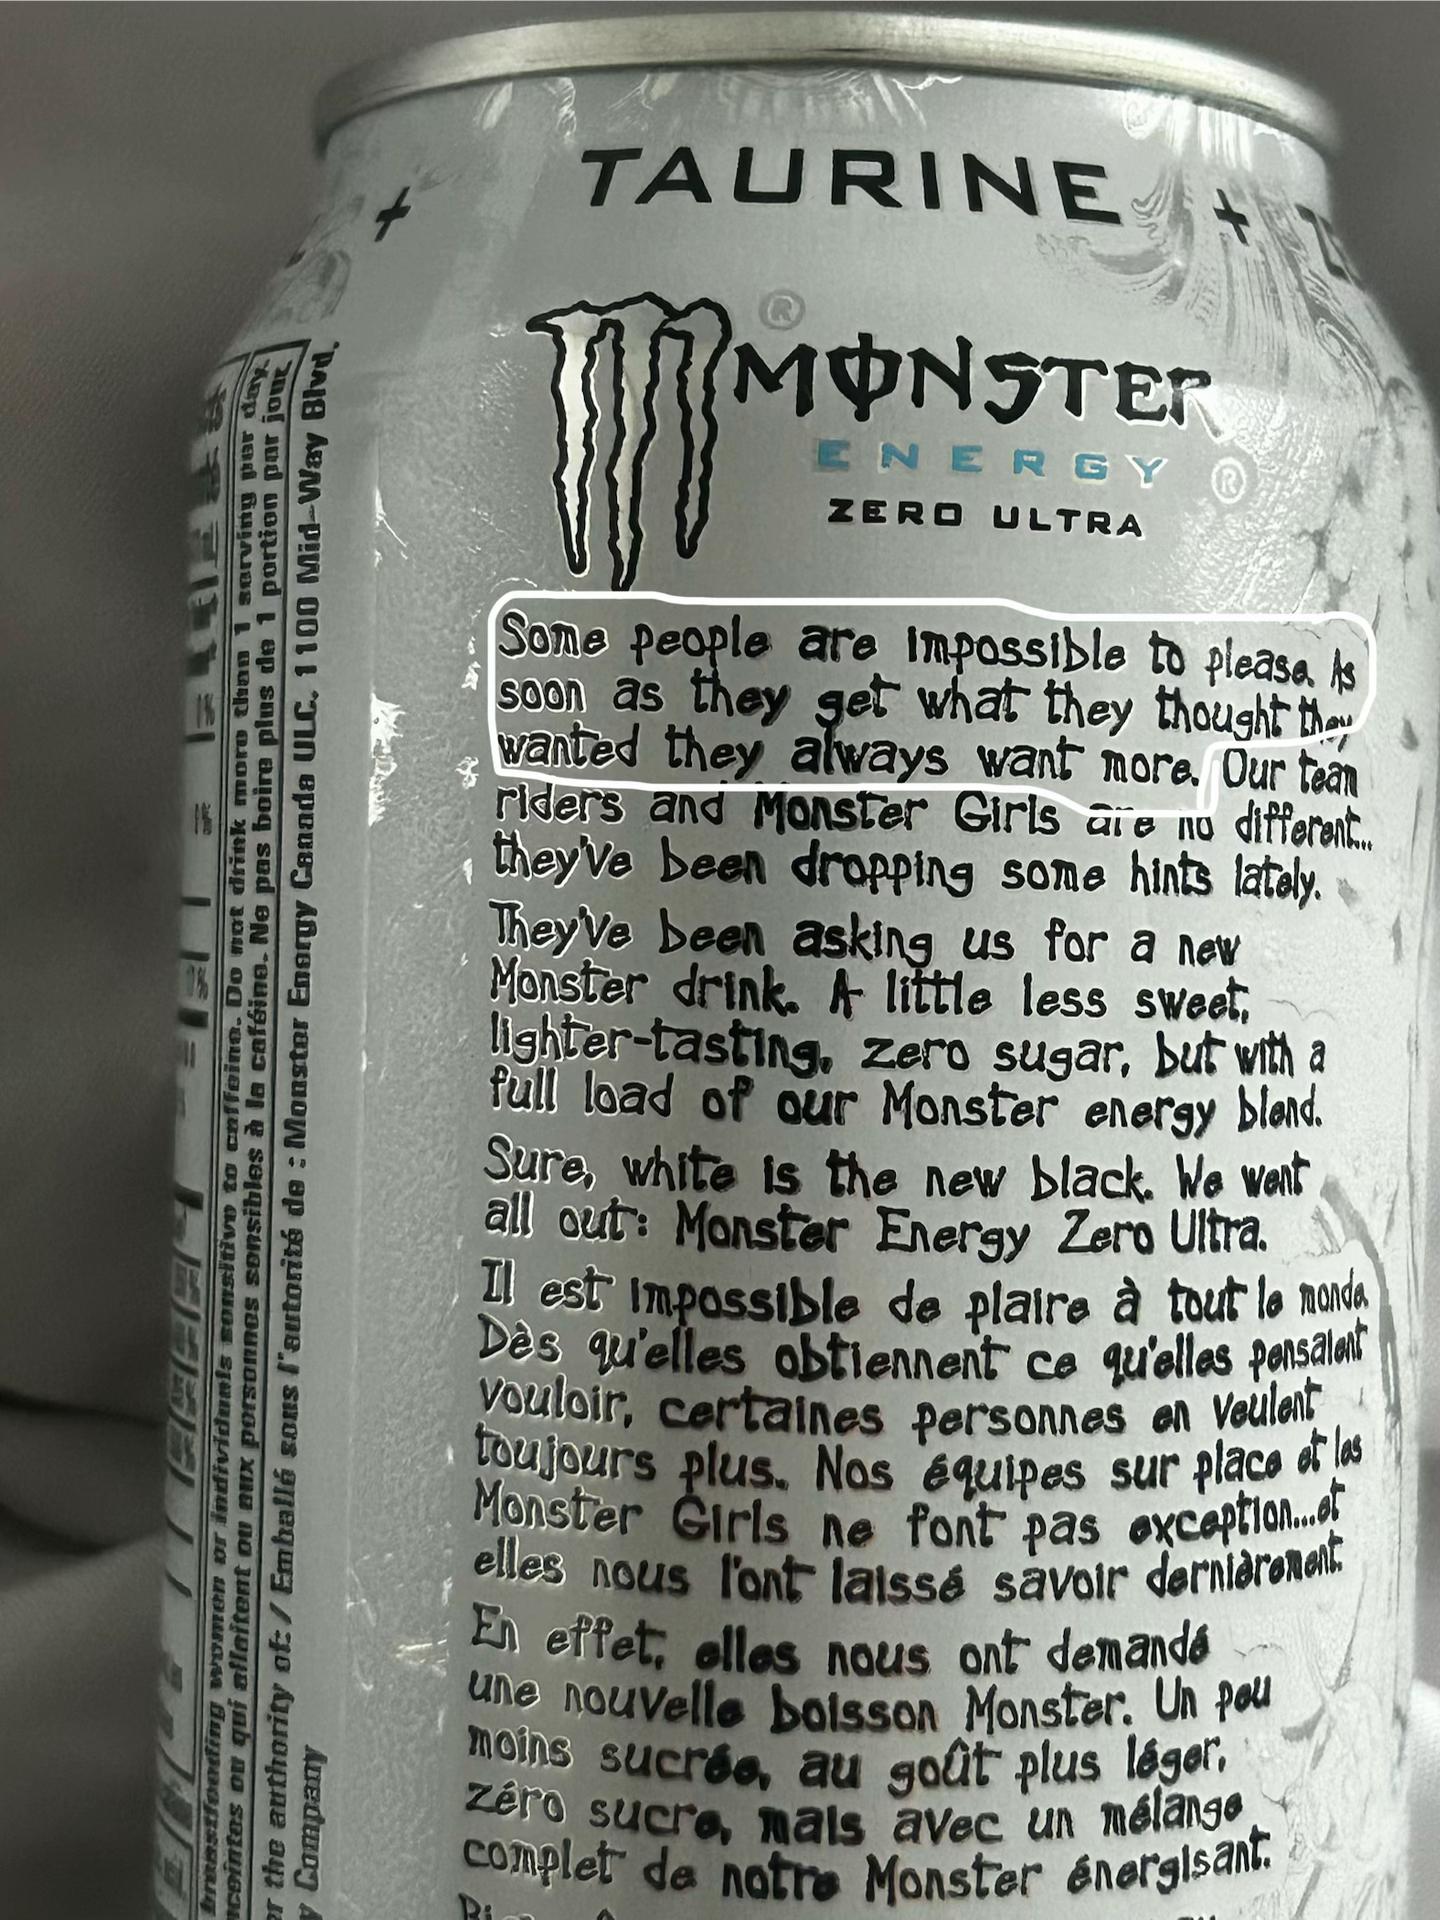 TAURINE
MONSTER
ENERGY
ZERO ULTRA
Some people are impossible to please. As
soon as they get what they thought they
wanted they always want more. Our team
riders and Monster Girls are no different...
they've been dropping some hints lately.
They've been asking us for a new
Monster drink. A little less sweet,
lighter-tasting, zero sugar, but with a
full load of our Monster energy blend.
Sure, white is the new black. We went
all out: Monster Energy Zero Ultra.
Il est impossible de plaire à tout le monde.
Dès qu'elles obtiennent ce qu'elles pensaient
vouloir, certaines personnes en veulent
toujours plus. Nos équipes sur place et les
Monster Girls ne font pas exception...et
elles nous l'ont laissé savoir dernièrement.
En effet, elles nous ont demandé
une nouvelle boisson Monster. Un peu
moins sucrée, au goût plus léger,
zéro sucre, mais avec un mélange
complet de notre Monster énergisant.
breastfeeding women or individuals sensitive to caffeine. Do not drink more than 1 serving per day.
enceintes ou qui allaitent ou aux personnes sensibles à la caféine. Ne pas boire plus de 1 portion par jour.
the authority of: / Emballé sous l'autorité de : Monster Energy Canada ULC. 1100 Mid-Way Blvd.
Company